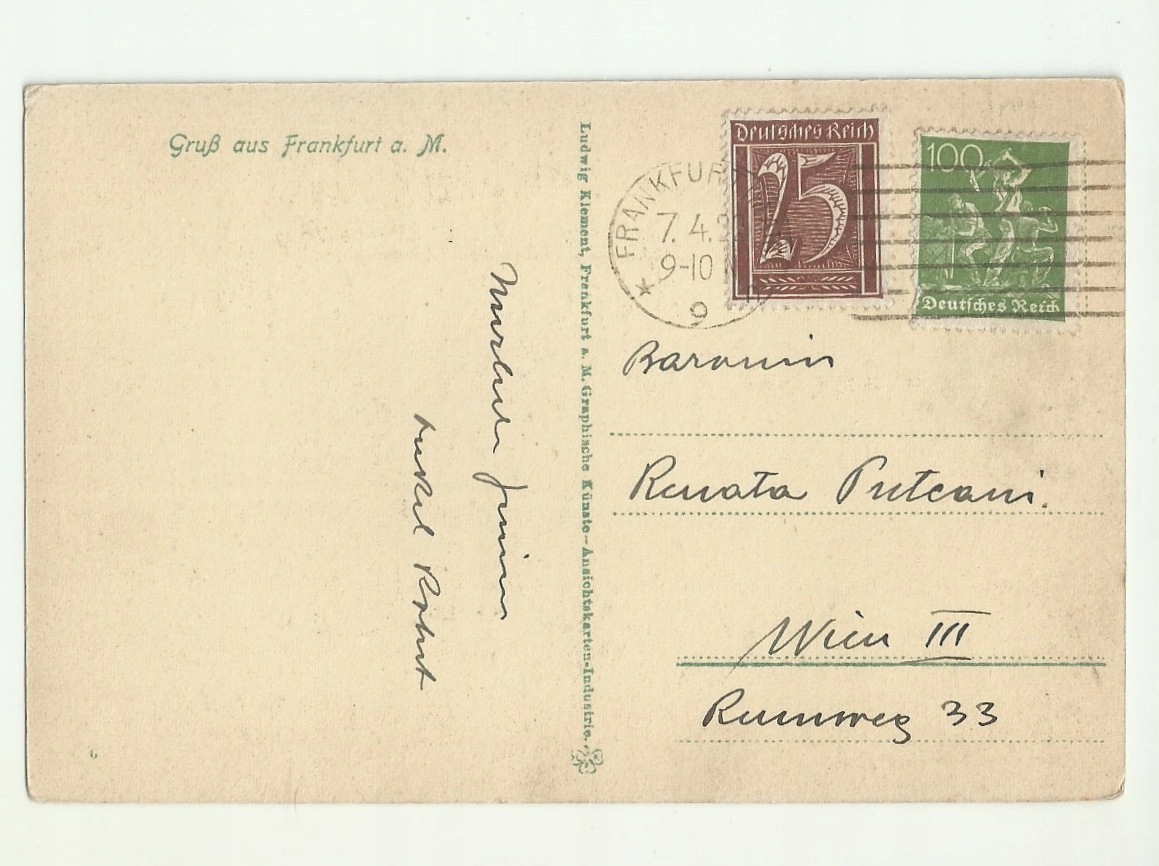 Gruß aus Frankfurt a. M.
Ludwig Klement, Frankfurt a. M. Graphische Künste-Ansichtskarten-Industrie.
FRANKFURT
7. 4.
9-10 N
9
Deutsches Reich
25
100
Deutsches Reich
Baronin
Renata Puteani.
Wien III
Rennweg 33
onkel Robert
6